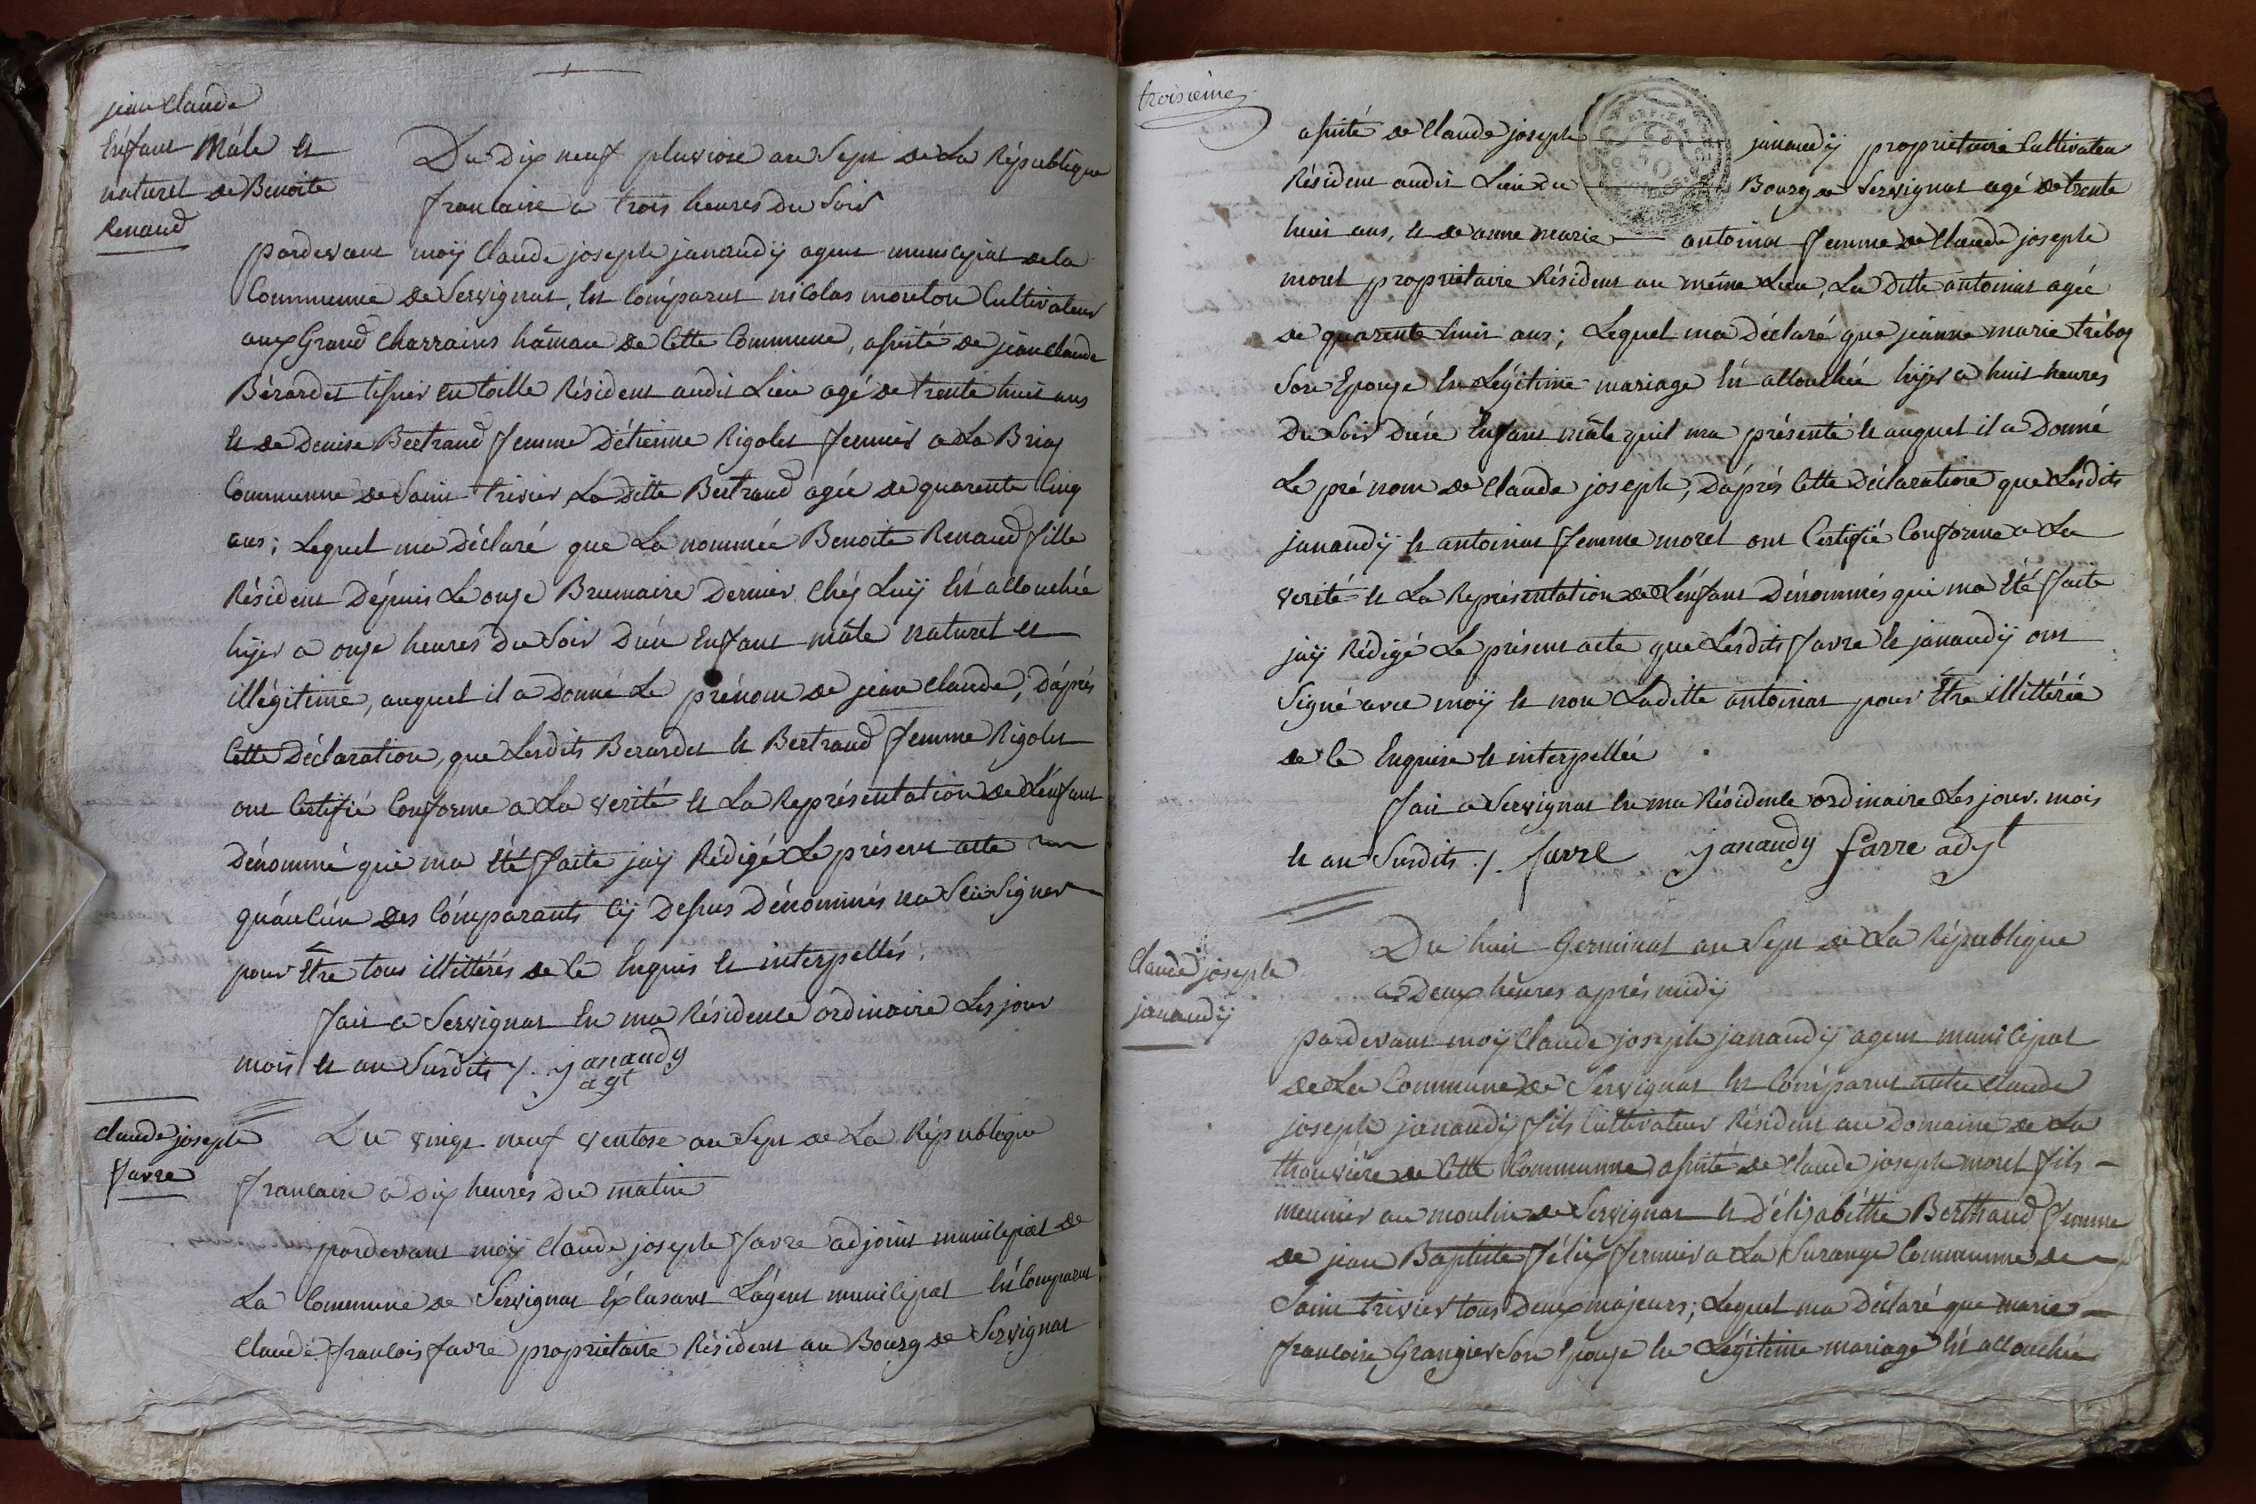 jean Claude
Enfant Mâle et
naturel de Benoite
Renaud
Du dix neuf pluviose an Sept de La République
francaise a trois heures du Soir
pardevant moÿ Claude joseph janaudÿ agent municipal de la
Commune de Servignat, est Comparut nicolas mouton Cultivateur
aux Grand Charrains hâmau de Cette Commune, assisté de jean Claude
Bérardet tissier en toille Résident audit Lieu agé de trente huit ans
et de Denise Bertrand femme d'étienne Rigolet fermier a La
Commune de Saint trivier, La ditte Bertrand agée de quarente Cinq
ans; Lequel ma déclaré que La nommée Benoite Renaud fille
Résident Dépuis Le onze Brumaire Dernier Chéz Luÿ Est accouchée
hÿer a onze heures du Soir d'un Enfant mâle naturel et
illégitime, auquel il a donné Le prénom de jean Claude, D'aprés
Cette Déclaration, que Lesdits Berardet et Bertrand femme Rigolet
ont Certifié Conforme a La verité et La Représentation de L'énfant
Dénommé qui ma Eté faite jaÿ Rédigé Le présent acte
qu'aucun des Comparants Cÿ Dessus Dénommés na Scu Signer
pour Etre tous illittérés de ce Enquis et interpellés.
fait a Servignat En ma Résidence ordinaire Les jour
mois et an Susdits /. janaudy
agt
Claude joseph
favre
Du vingt neuf ventose an Sept de La République
francaise a dix heures du matin
pardevant moÿ Claude joseph favre adjoint municipal de
La Commune de Servignat L'agent municipal Est Comparut
Claude francois favre propriétaire Résident au Bourg de Servignat
troisième
assisté de Claude joseph janaudÿ propriétaire Cultivateur
Résident audit Lieu du Bourg de Servignat agé de trente
huit ans, et de anne marie antoinat femme de Claude joseph
moret propriétaire Résident au même Lieu, La ditte antoinat agée
de quarente huit ans; Lequel ma déclaré que jeanne marie
Son Epouze En Légitime mariage Est accouchée hÿer a huit heures
du Soir d'un Enfant mâle qu'il ma présenté et auquel il a donné
Le prénom de Claude joseph, D'aprés Cette Déclaration que Lesdits
janaudÿ et antoinat femme moret ont Certifié Conforme a La
verité et La Représentation de L'énfant Dénommés qui ma Eté faite
jaÿ Rédigé Le présent acte que Lesdits favre et janaudÿ ont
Signé avec moÿ et non Laditte antoinat pour Etre illittérée
de ce Enquise et interpellée
fait a Servignat En ma Résidence ordinaire Les jour. mois
et an Susdits /. favre janaudy favre adjt
Claude joseph
janaudÿ
Du huit Germinal an Sept de La République
a Deux heures aprés midÿ
pardevant moÿ Claude joseph janaudÿ agent municipal
de La Commune de Servignat Est Comparut autre Claude
joseph janaudÿ fils Cultivateur Résident au Domaine de La
thouvière de Cette Commune assisté de Claude joseph moret fils
meunier au moulin de Servignat et d'élizabéthe Berthaud femme
de jean Baptiste féliy fermier a La Surange Commune de
Saint trivier tous Deux majeurs; Lequel ma Déclaré que marie
francoise Grangier Son Epouze En Légitime mariage Est accouchée